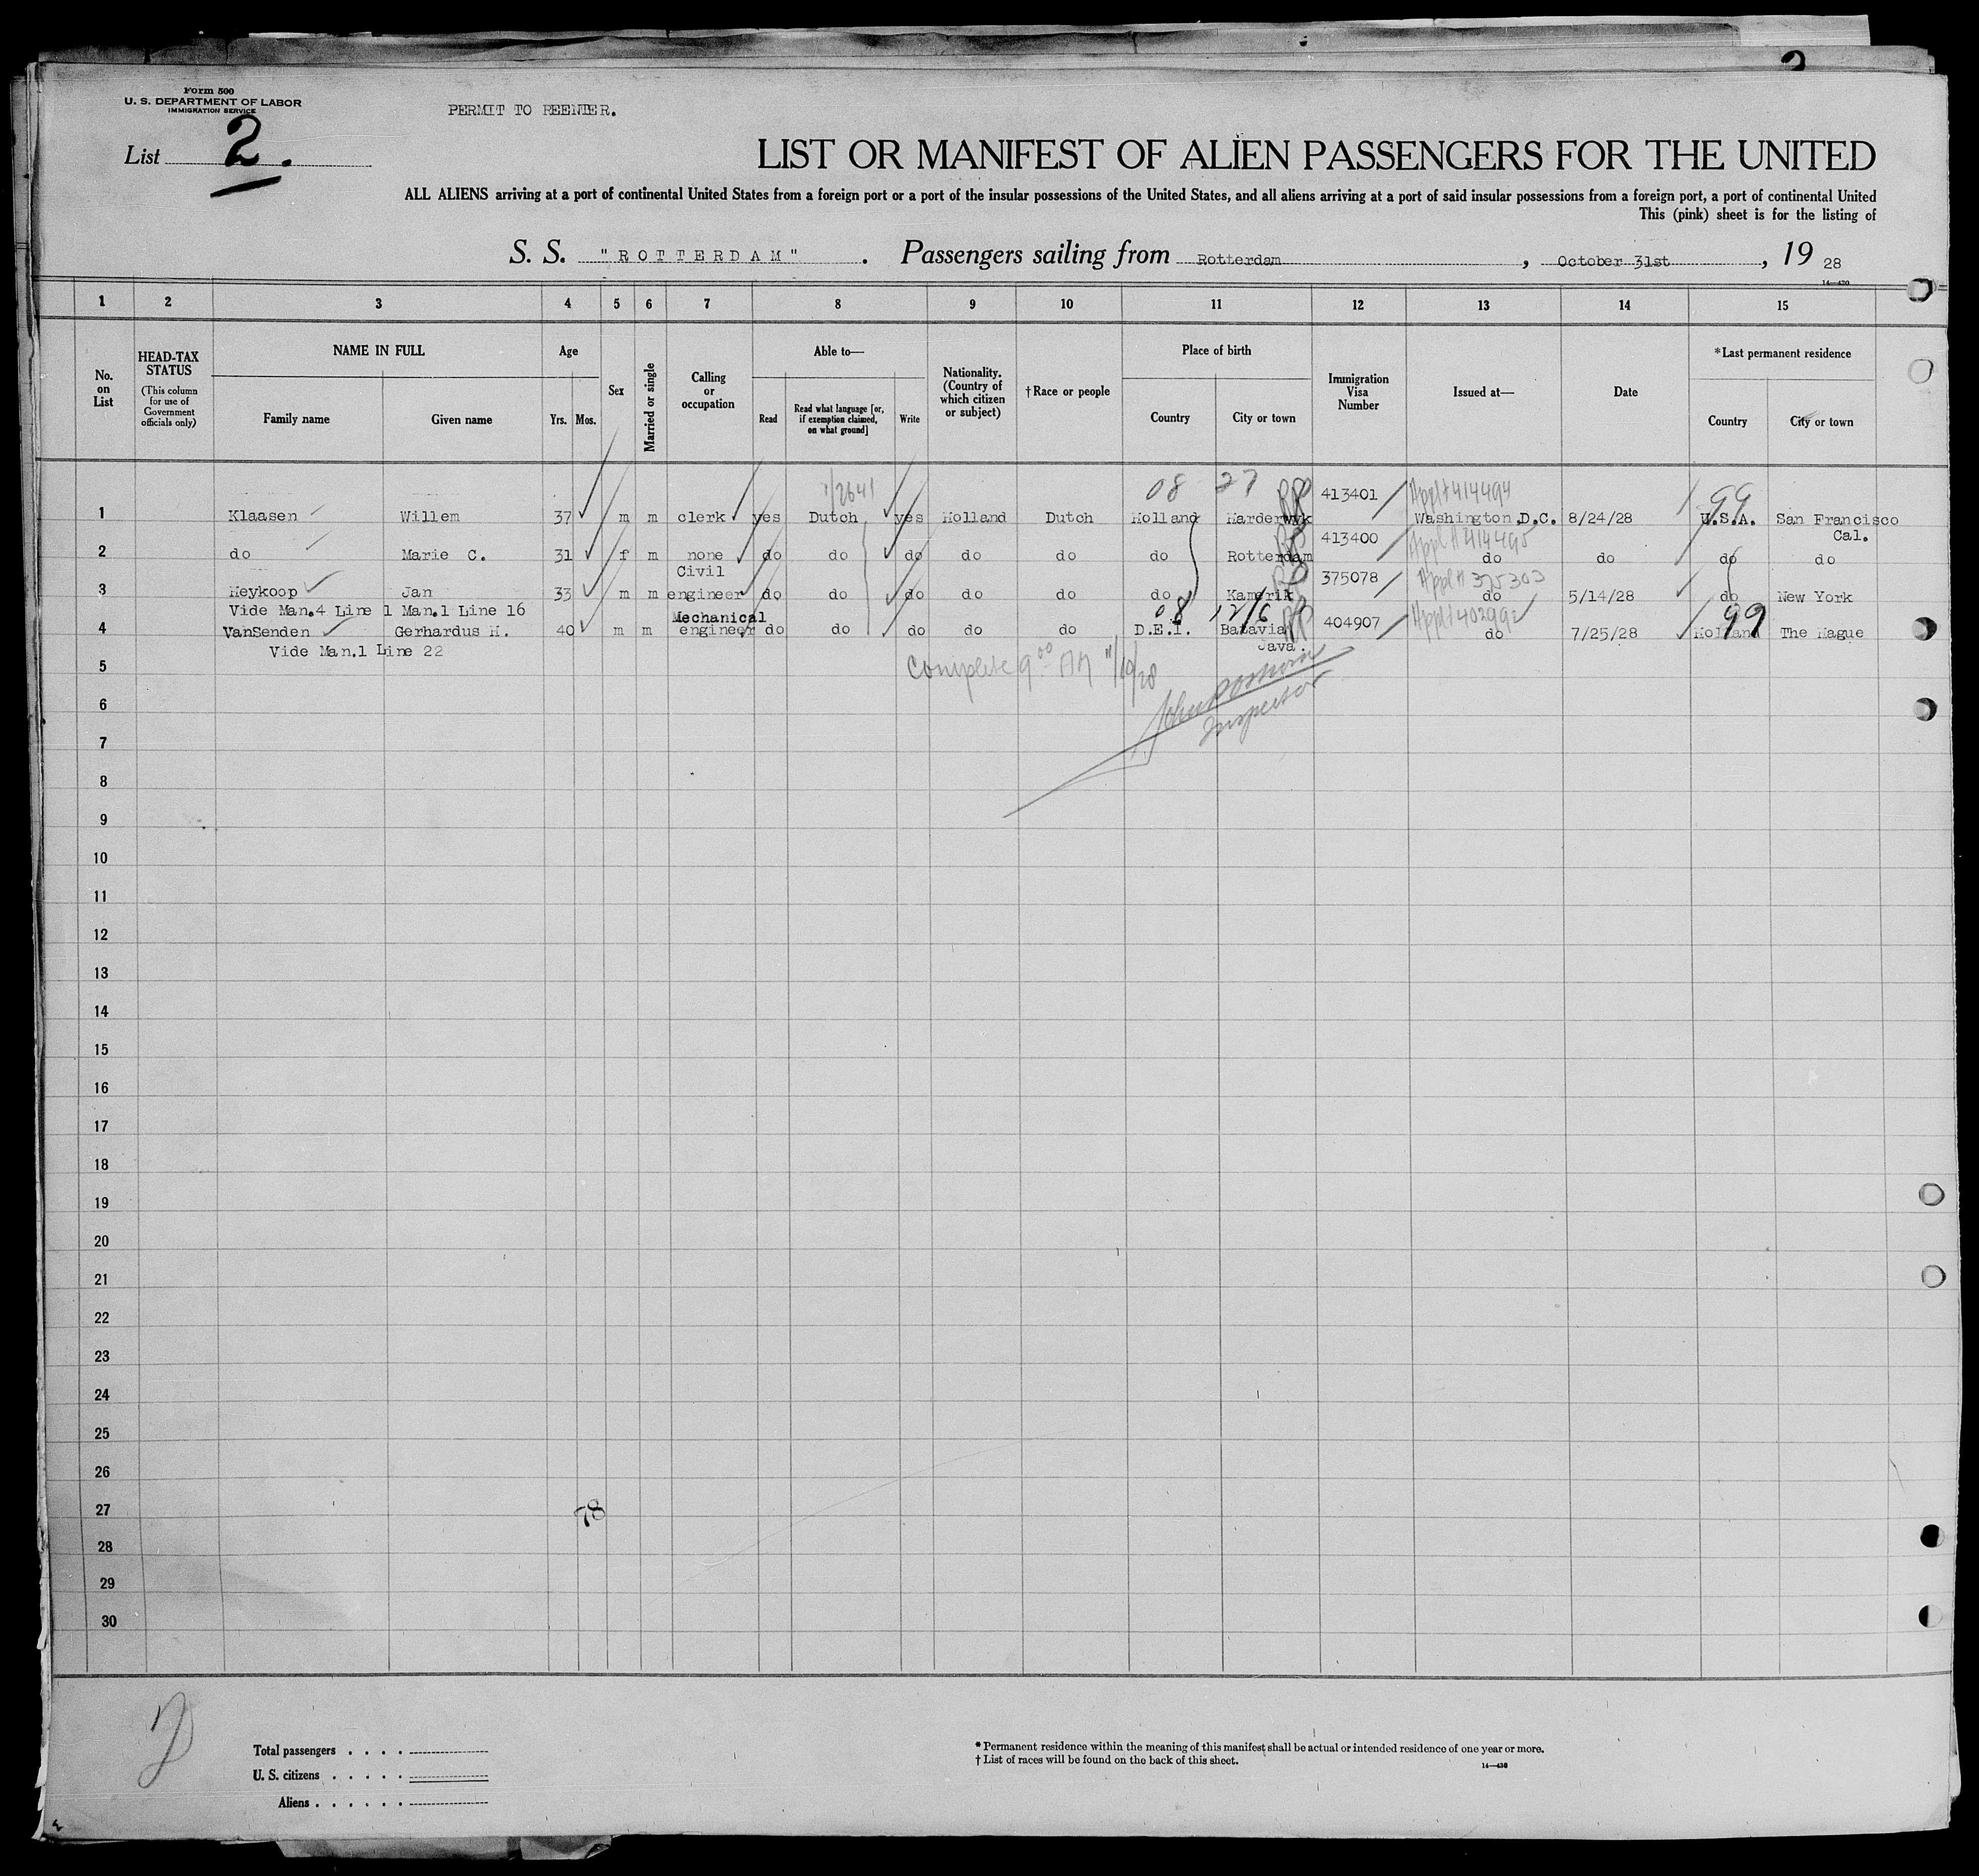 Form 500
U. S. DEPARTMENT OF LABOR
IMMIGRATION SERVICE
PERMIT TO REENTER.
List 2.
LIST OR MANIFEST OF ALIEN PASSENGERS FOR THE UNITED
ALL ALIENS arriving at a port of continental United States from a foreign port or a port of the insular possessions of the United States, and all aliens arriving at a port of said insular possessions from a foreign port, a port of continental United
This (pink) sheet is for the listing of
S. S. "ROTTERDAM". Passengers sailing from Rotterdam, October 31st, 19 28
14—430
1 2 3 4 5 6 7 8 9 10 11 12 13 14 15
No. on List
HEAD-TAX STATUS
(This column for use of Government officials only)
NAME IN FULL
Family name Given name
Age
Yrs. Mos.
Sex
Married or single
Calling or occupation
Able to—
Read
Read what language [or, if exemption claimed, on what ground]
Write
Nationality. (Country of which citizen or subject)
†Race or people
Place of birth
Country City or town
Immigration Visa Number
Issued at—
Date
*Last permanent residence
Country City or town
1/2641 08 27 413401 Appl# 414494 99
1 Klaasen Willem 37 m m clerk yes Dutch yes Holland Dutch Holland Harderwyk Washington,D.C. 8/24/28 U.S.A. San Francisco
Cal.
413400 Appl# 414495
2 do Marie C. 31 f m none do do do do do do Rotterdam do do do do
Civil 375078 Appl# 375303
3 Heykoop Jan 33 m m engineer do do do do do do Kamerik do 5/14/28 do New York
Vide Man.4 Line 1 Man.1 Line 16
Mechanical 08 12/6 404907 Appl# 402992 99
4 VanSenden Gerhardus H. 40 m m engineer do do do do do D.E.I. Batavia do 7/25/28 Holland The Hague
Vide Man.1 Line 22 Java.
5
Complete 9 00 AM 11/10/28
Inspector
6
7
8
9
10
11
12
13
14
15
16
17
18
19
20
21
22
23
24
25
26
27
78
28
29
30
Total passengers . . . .
U. S. citizens . . . . .
Aliens . . . . . .
* Permanent residence within the meaning of this manifest shall be actual or intended residence of one year or more.
† List of races will be found on the back of this sheet.
14—430